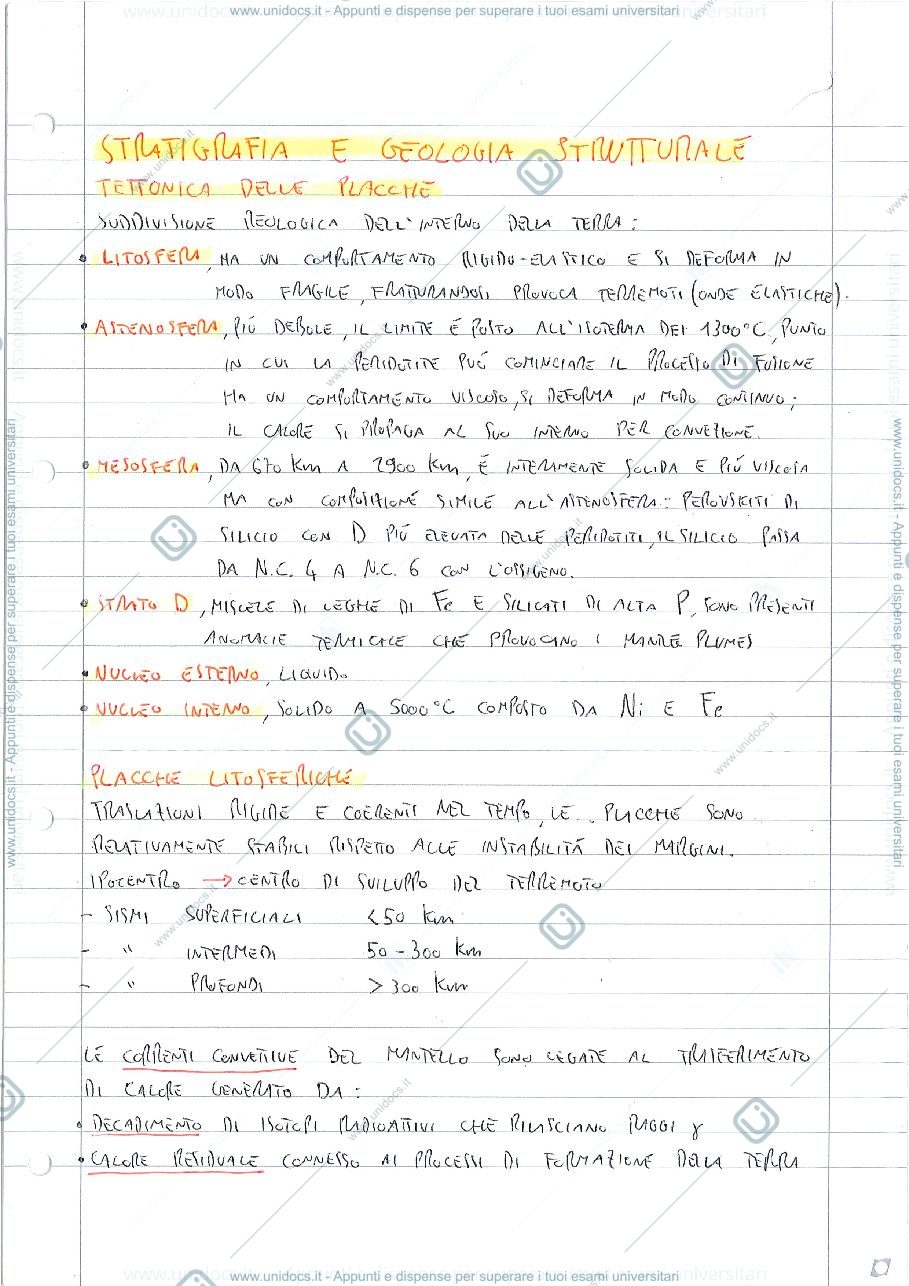 www.unidocs.it - Appunti e dispense per superare i tuoi esami universitari
STRATIGRAFIA E GEOLOGIA STRUTTURALE
TETTONICA DELLE PLACCHE
SUDDIVISIONE REOLOGICA DELL'INTERNO DELLA TERRA:
• LITOSFERA, HA UN COMPORTAMENTO RIGIDO-ELASTICO E SI DEFORMA IN
MODO FRAGILE, FRATTURANDOSI PROVOCA TERREMOTI (ONDE ELASTICHE).
• ASTENOSFERA, PIÚ DEBOLE, IL LIMITE É POSTO ALL'ISOTERMA DEI 1300°C, PUNTO
IN CUI LA PERIDOTITE PUÓ COMINCIARE IL PROCESSO DI FUSIONE
HA UN COMPORTAMENTO VISCOSO, SI DEFORMA IN MODO CONTINUO;
IL CALORE SI PROPAGA AL SUO INTERNO PER CONVEZIONE.
• MESOSFERA, DA 670 Km A 2900 Km, É INTERAMENTE SOLIDA E PIÚ VISCOSA
MA CON COMPOSIZIONE SIMILE ALL'ASTENOSFERA: PEROVSKITI DI
SILICIO CON D PIÚ ELEVATA DELLE PERIDOTITI, IL SILICIO PASSA
DA N.C. 4 A N.C. 6 CON L'OSSIGENO.
• STRATO D, MISCELE DI LEGHE DI Fe E SILICATI DI ALTA P, SONO PRESENTI
ANOMALIE TERMICHE CHE PROVOCANO I MANTLE PLUMES
• NUCLEO ESTERNO, LIQUIDO
• NUCLEO INTERNO, SOLIDO A 5000°C COMPOSTO DA Ni E Fe
PLACCHE LITOSFERICHE
TRASLAZIONI RIGIDE E COERENTI NEL TEMPO, LE PLACCHE SONO
RELATIVAMENTE STABILI RISPETTO ALLE INSTABILITÁ DEI MARGINI.
IPOCENTRO → CENTRO DI SVILUPPO DEL TERREMOTO
- SISMI SUPERFICIALI <50 Km
- " INTERMEDI 50-300 Km
- " PROFONDI >300 Km
LE CORRENTI CONVETTIVE DEL MANTELLO SONO LEGATE AL TRASFERIMENTO
DI CALORE GENERATO DA:
• DECADIMENTO DI ISOTOPI RADIOATTIVI CHE RILASCIANO RAGGI γ
• CALORE RESIDUALE CONNESSO AI PROCESSI DI FORMAZIONE DELLA TERRA
www.unidocs.it - Appunti e dispense per superare i tuoi esami universitari